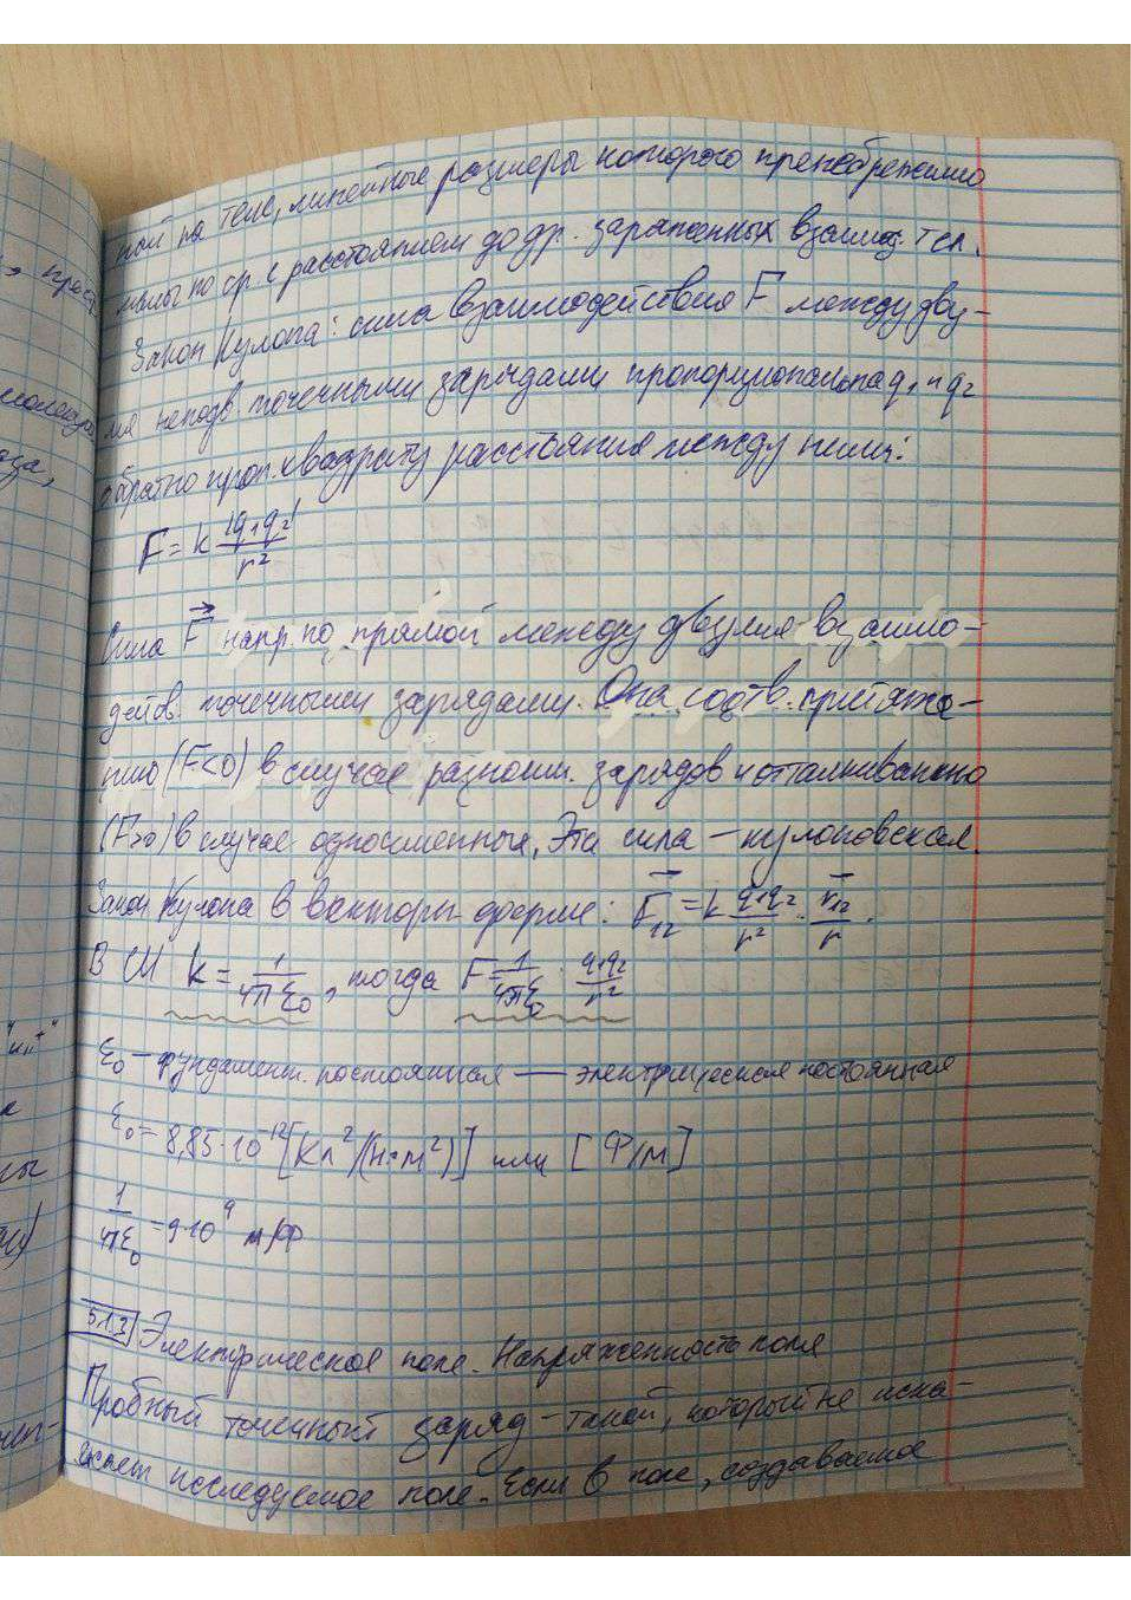 ной на теле, линейные размеры которого пренебрежимо
малы по ср. с расстоянием до др. заряженных взаимод. тел.
Закон Кулона: сила взаимодействия F между дву-
мя неподв. точечными зарядами пропорциональна q₁ и q₂
обратно проп. квадрату расстояния между ними:
F = k |q₁q₂| / r²
Сила F⃗ напр. по прямой между двумя взаимо-
действ. точечными зарядами. Она соотв. притяже-
нию (F<0) в случае разноим. зарядов и отталкиванию
(F>0) в случае одноименных. Эта сила – кулоновская.
Закон Кулона в векторн. форме: F⃗₁₂ = k q₁q₂/r² · r⃗₁₂/r.
В СИ k = 1/4πε₀, тогда F = 1/4πε₀ · q₁q₂/r²
ε₀ – фундамент. постоянная — электрическая постоянная
ε₀ = 8,85·10⁻¹² [Кл²/(Н·м²)] или [Ф/м]
1/4πε₀ = 9·10⁹ м/Ф
5.1.3 Электрическое поле. Напряженность поля
Пробный точечный заряд – такой, который не иска-
жает исследуемое поле. Если в поле, создаваемое